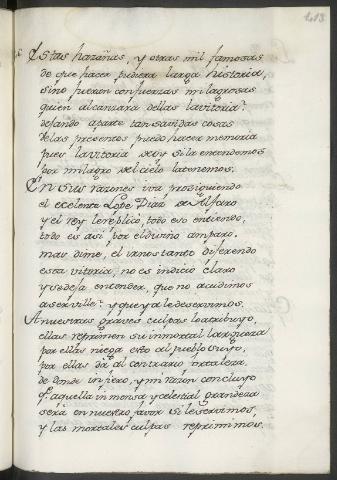 113
Estas hazañas, y otras mil famosas
de que hacer pudiera larga historia,
sino fueron con fuerzas milagrosas
quien alcanzara dellas la vitoria?
dejando aparte tan savidas cosas
de las presentes puedo hacer memoria
pues la vitoria de oy si la entendemos
por milagro del cielo la tenemos.
En sus razones iva prosiguiendo
el excelente Lope Diaz de Alfaro
y el rey le replicó, todo eso entiendo,
todo es asi por el divino amparo.
mas dime, el irnos tanto difiriendo
esta vitoria, no es indicio claro
y se deja entender, que no acudimos
a serville? y que ya le deservimos.
A nuestras graves culpas lo atribuyo,
ellas reprimen su inmortal largueza
por ellas niega esto al pueblo suyo,
por ellas da al contrario
de donde infiero, y mi razon concluyo
q.e aquella inmensa y celestial grandeza
será en nuestro favor si le servimos,
y las mortales culpas reprimimos.